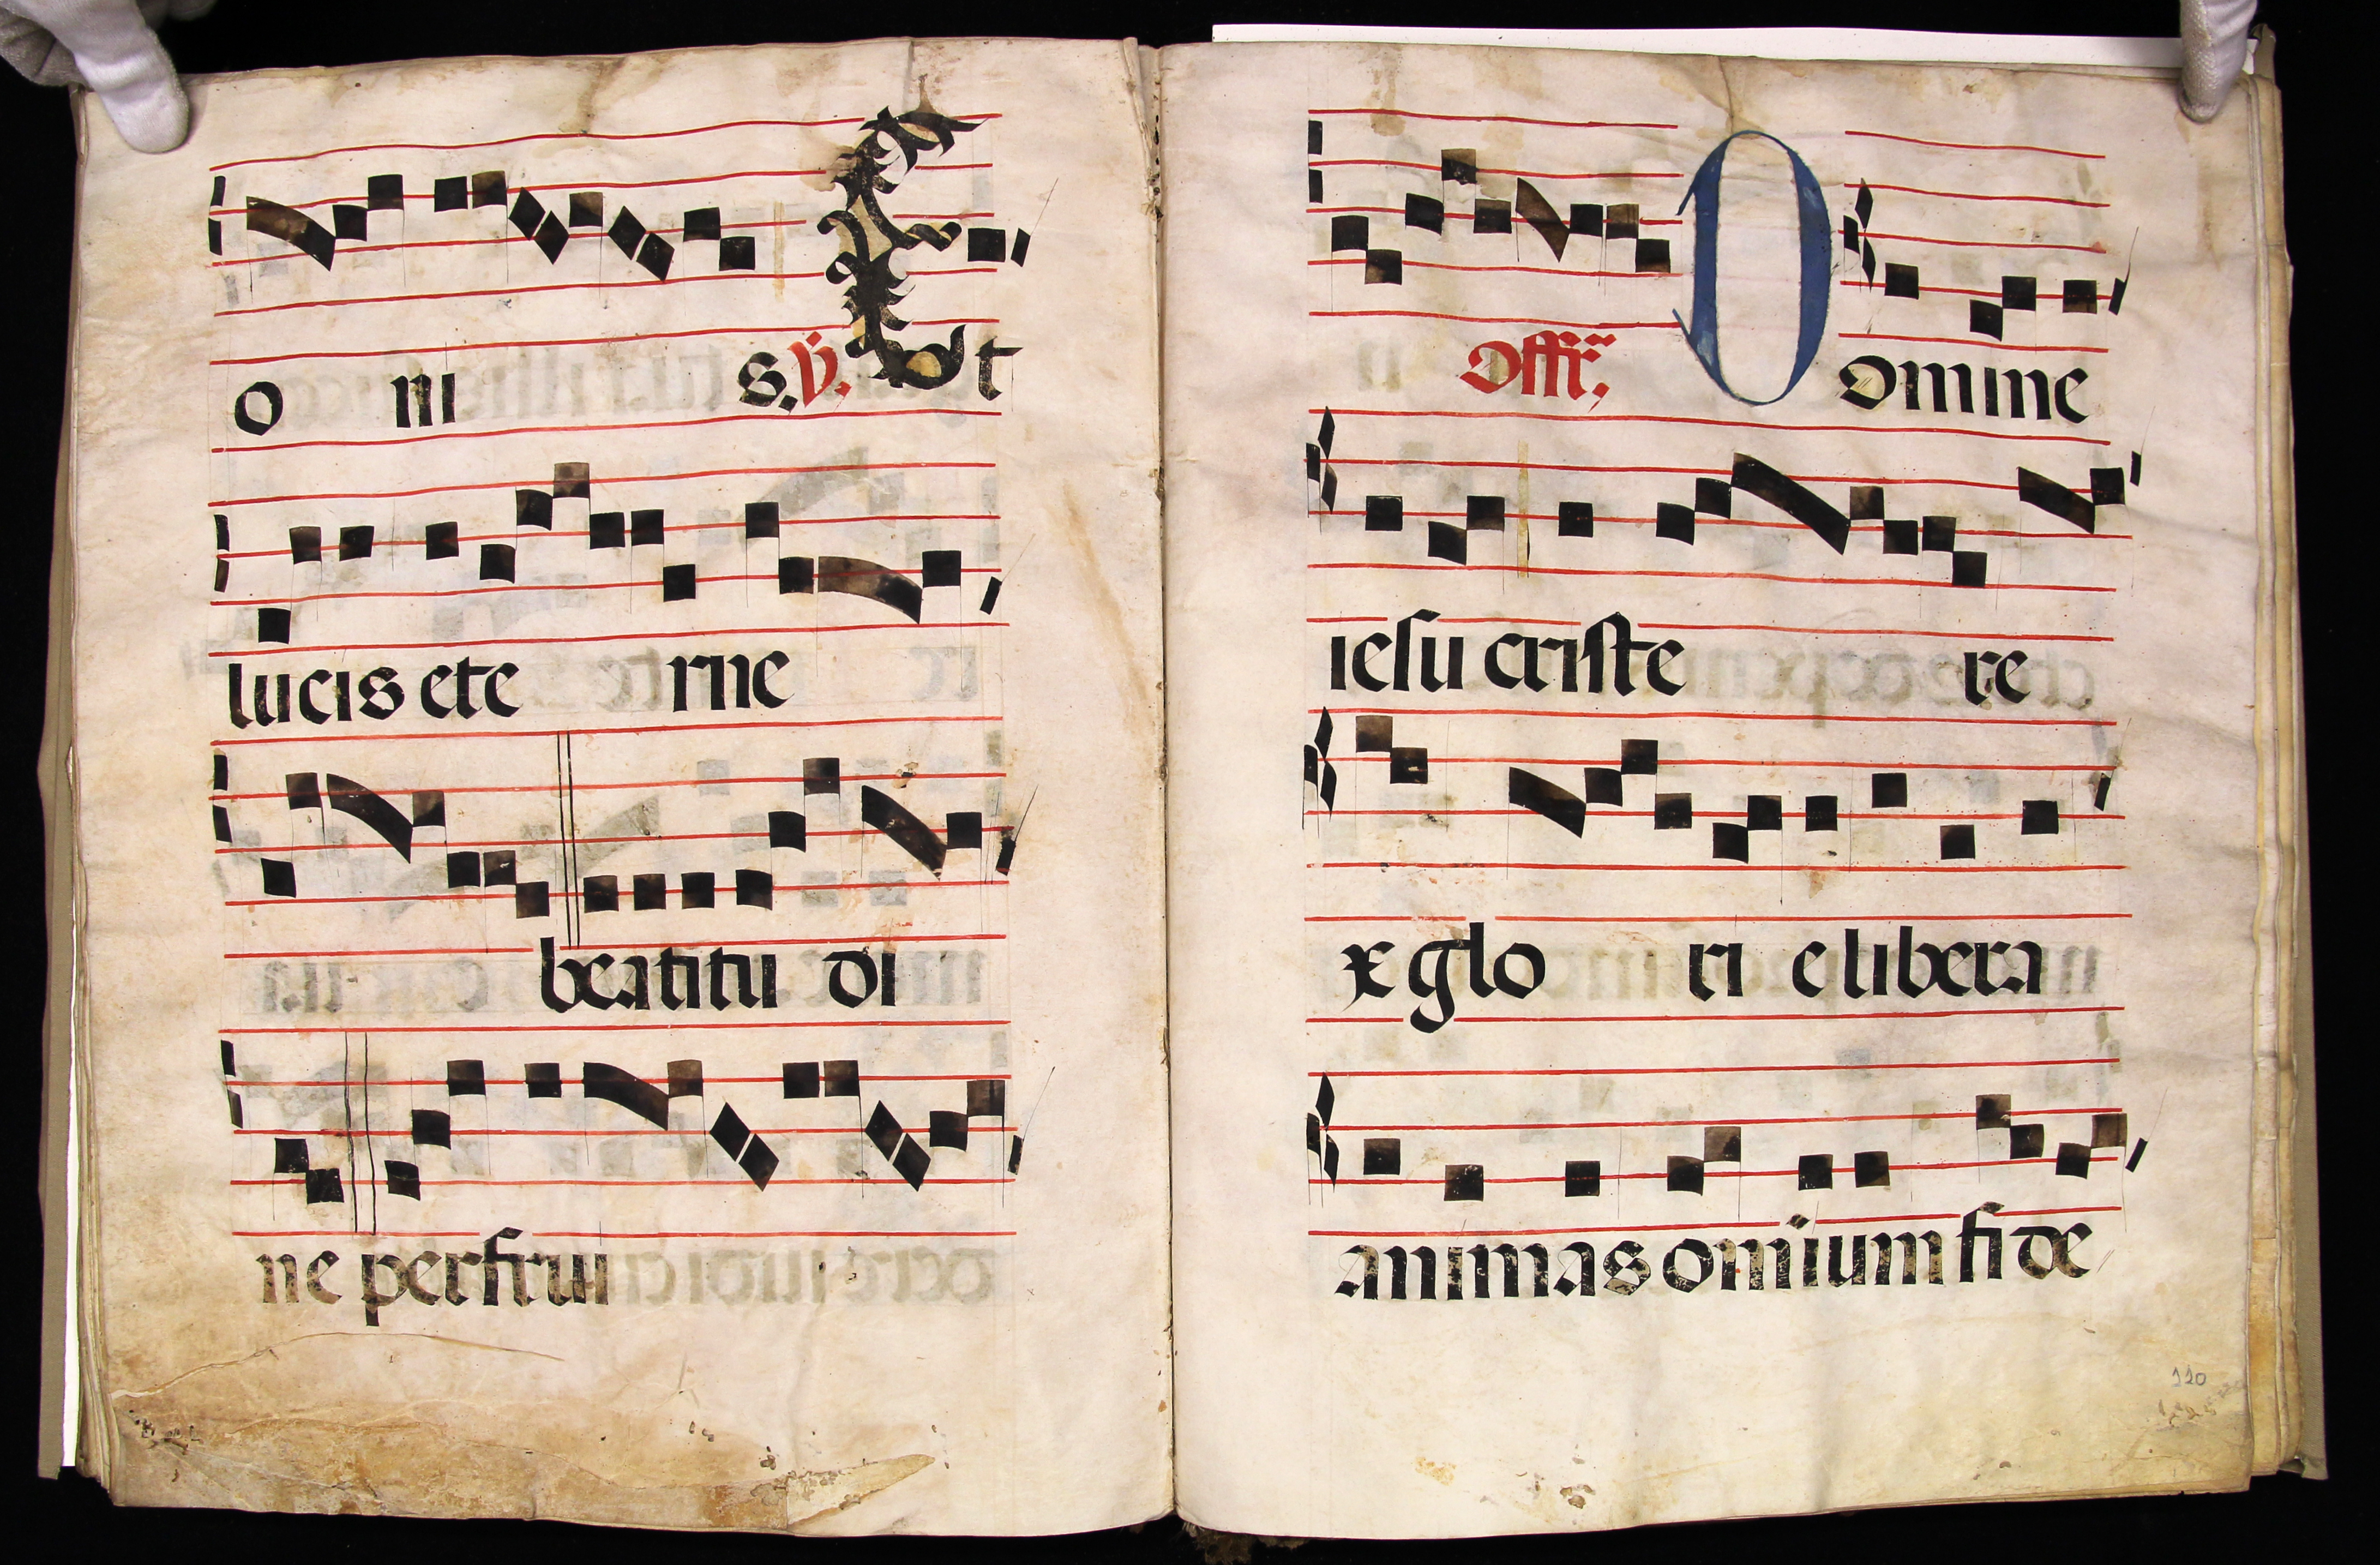 o ni s. ℣. Et
lucis ete rne
beatitu di
ne perfrui
Offr̃. D omine
iesu criste re
x glo ri e libera
animas omium fide
110